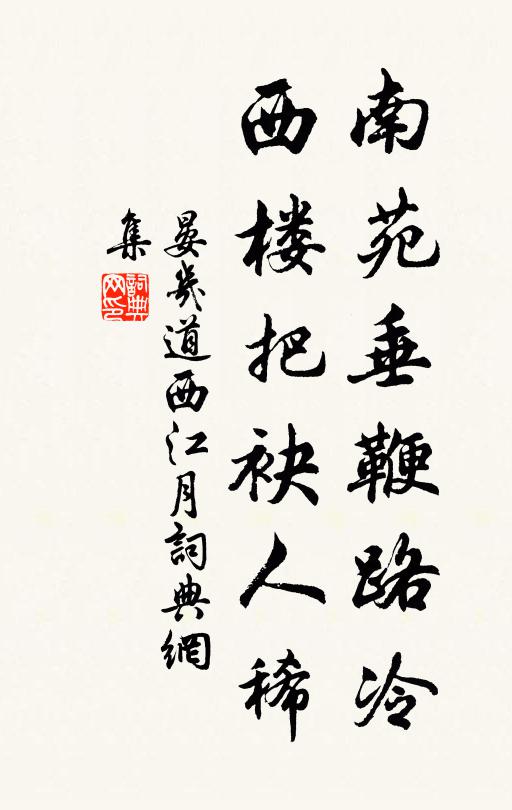 南苑垂鞭路冷
西楼把袂人稀
晏幾道西江月詞典網
集
詞典
网印